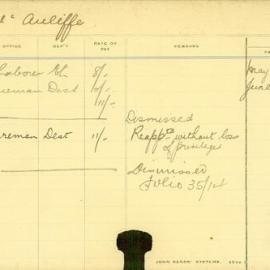 Auliffe
OFFICE DEP'T RATE OF PAY REMARKS
Labourer Ch. 8/- May
Fireman Dest 10/- June
11/-
Dismissed
Fireman Dest 11/- Reapp'td without loss
of privileges
Dismissed
Folio 35/14